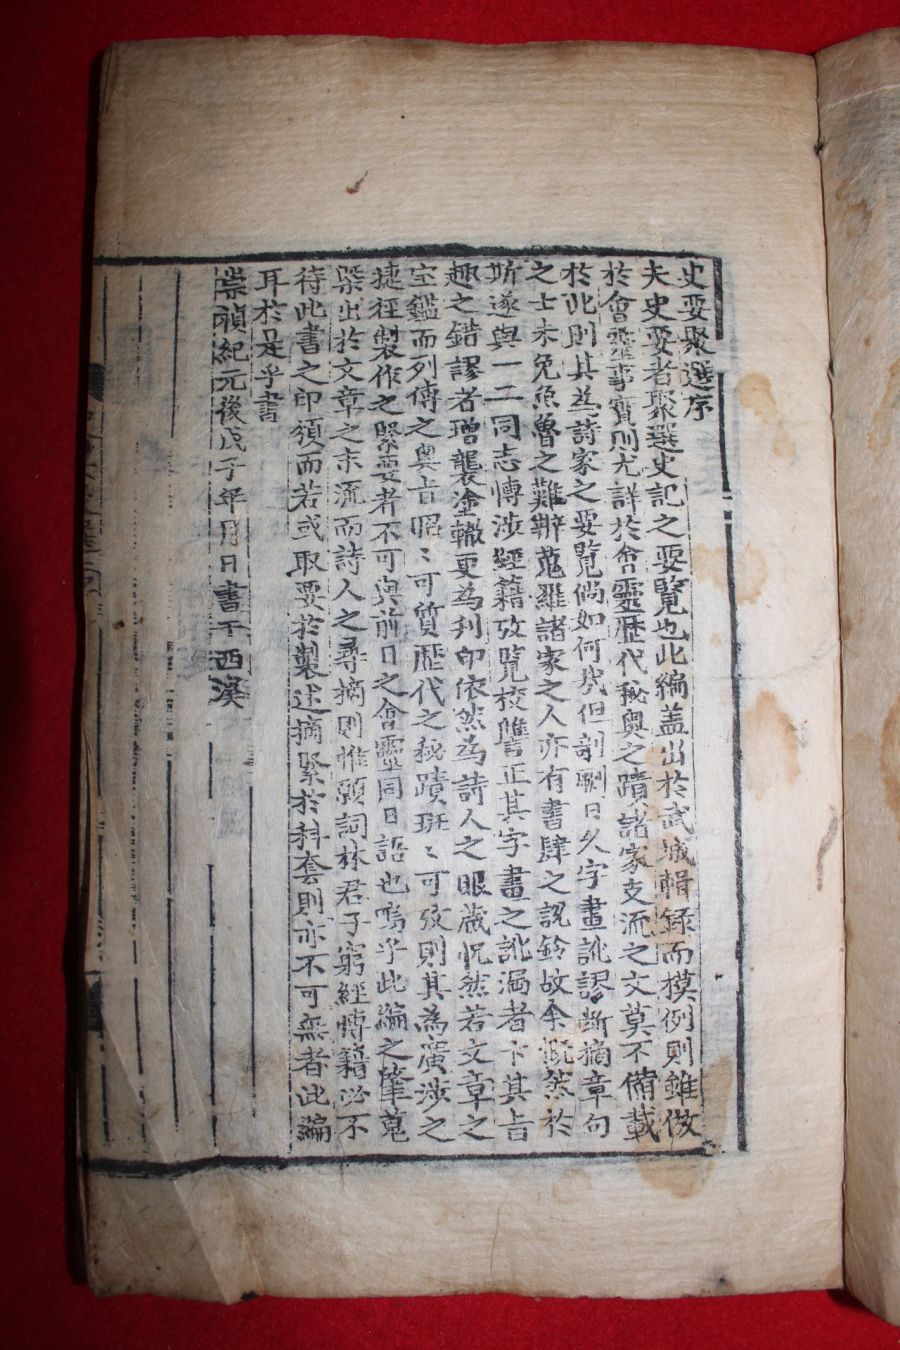 史要聚選序
夫史要者聚選史記之要覽也此編盖出於武城輯録而摸例則雖倣
於會靈事實則尤詳於會靈歷代秘奥之蹟諸家支流之文莫不備載
於此則其爲詩家之要覽倘如何㦲但剞劂日久字畫訛謬斷摘章句
之士未免魚魯之難辨蒐羅諸家之人亦有書肆之誤鈴故余慨然於
斯遂與一二同志慱涉經籍攷覧校讐正其字畫之訛漏者卞其旨
趣之錯謬者增襲塗轍更爲刋印依然爲詩人之眼蔵怳然若文章之
宝鑑而列傳之奥旨昭〻可質歷代之秘蹟班〻可攷則其為廣涉之
捷徑製作之緊要者不可與前日之會靈同日語也嗚乎此編之肇蒐
槩出於文章之末流而詩人之尋摘則惟願詞林君子窮經慱籍必不
待此書之印頒而若或取要於製述摘緊於科套則亦不可無者此編
耳於是乎書
崇禎紀元後戊子年月日書于西溪